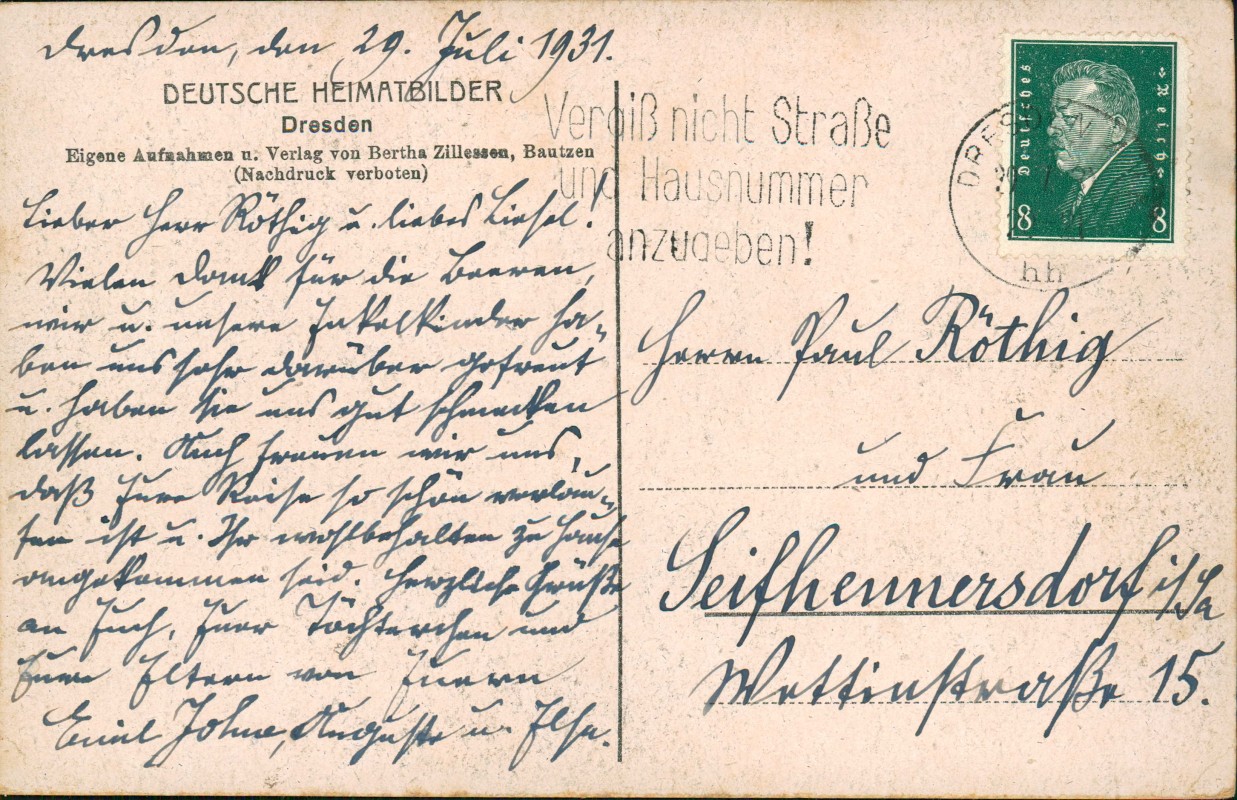 Dresden, den 29. Juli 1931.
DEUTSCHE HEIMATBILDER
Dresden
Eigene Aufnahmen u. Verlag von Bertha Zillessen, Bautzen
(Nachdruck verboten)
Lieber Herr Röthig u. liebes Liesel!
Vielen Dank für die Beeren,
wir u. unsere Enkelkinder ha-
ben uns sehr darüber gefreut
u. haben sie uns gut schmecken
lassen. Auch freuen wir uns,
daß Eure Reise so schön verlau-
fen ist u. Ihr wohlbehalten zu Hause
angekommen seid. Herzliche Grüße
an Euch, Euer Töchterchen und
Eure Eltern von Euern
Emil Johne, Auguste u. Ilse.
Vergiß nicht Straße
und Hausnummer
anzugeben!
DRESDEN
hh
Deutsches Reich
8 8
Herrn Paul Röthig
und Frau
Seifhennersdorf i/Sa
Wettinstraße 15.